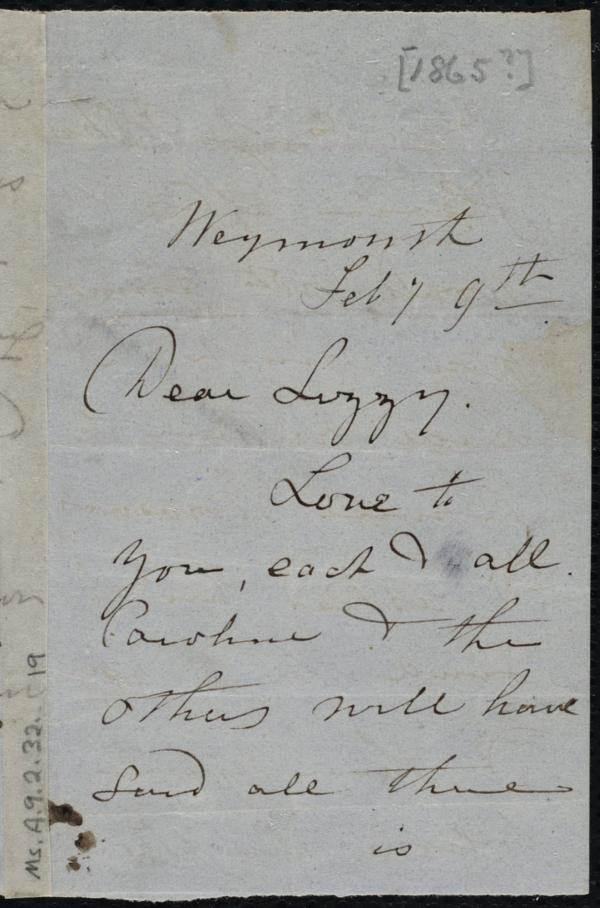 [1865?]
Weymouth
Feb y 9th
Dear Lizzy.
Love to
you, each & all.
Caroline & the
others will have
said all there
is
Ms. A.9.2.32. 19